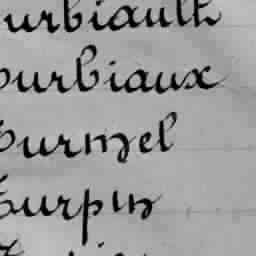 urbiault
Turbiaux
Turmel
Turpin